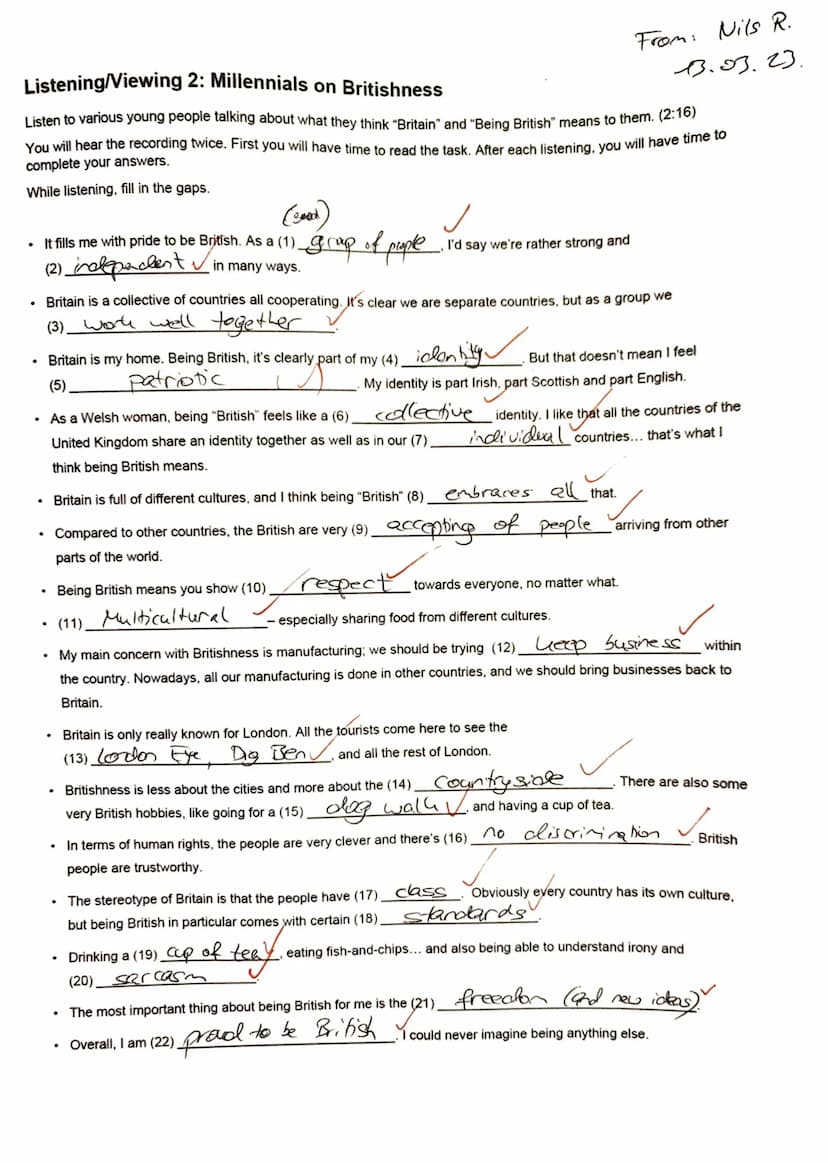 From: Nils R.
13.03.23.
Listening/Viewing 2: Millennials on Britishness
Listen to various young people talking about what they think “Britain” and “Being British” means to them. (2:16)
You will hear the recording twice. First you will have time to read the task. After each listening, you will have time to
complete your answers.
While listening, fill in the gaps.
(good)
• It fills me with pride to be British. As a (1) group of people, I’d say we’re rather strong and
(2) independent in many ways.
• Britain is a collective of countries all cooperating. It’s clear we are separate countries, but as a group we
(3) work well together.
• Britain is my home. Being British, it’s clearly part of my (4) identity. But that doesn’t mean I feel
(5) patriotic. My identity is part Irish, part Scottish and part English.
• As a Welsh woman, being “British” feels like a (6) collective identity. I like that all the countries of the
United Kingdom share an identity together as well as in our (7) individual countries... that’s what I
think being British means.
• Britain is full of different cultures, and I think being “British” (8) embraces all that.
• Compared to other countries, the British are very (9) accepting of people arriving from other
parts of the world.
• Being British means you show (10) respect towards everyone, no matter what.
• (11) Multicultural – especially sharing food from different cultures.
• My main concern with Britishness is manufacturing; we should be trying (12) keep business within
the country. Nowadays, all our manufacturing is done in other countries, and we should bring businesses back to
Britain.
• Britain is only really known for London. All the tourists come here to see the
(13) London Eye, Big Ben, and all the rest of London.
• Britishness is less about the cities and more about the (14) countryside. There are also some
very British hobbies, like going for a (15) dog walk, and having a cup of tea.
• In terms of human rights, the people are very clever and there’s (16) no discrimination. British
people are trustworthy.
• The stereotype of Britain is that the people have (17) class. Obviously every country has its own culture,
but being British in particular comes with certain (18) standards.
• Drinking a (19) cup of tea, eating fish-and-chips... and also being able to understand irony and
(20) sarcasm.
• The most important thing about being British for me is the (21) freedom (and new ideas).
• Overall, I am (22) proud to be British. I could never imagine being anything else.